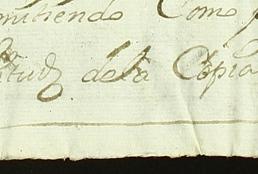 mitiendo Como
itud de la Copia